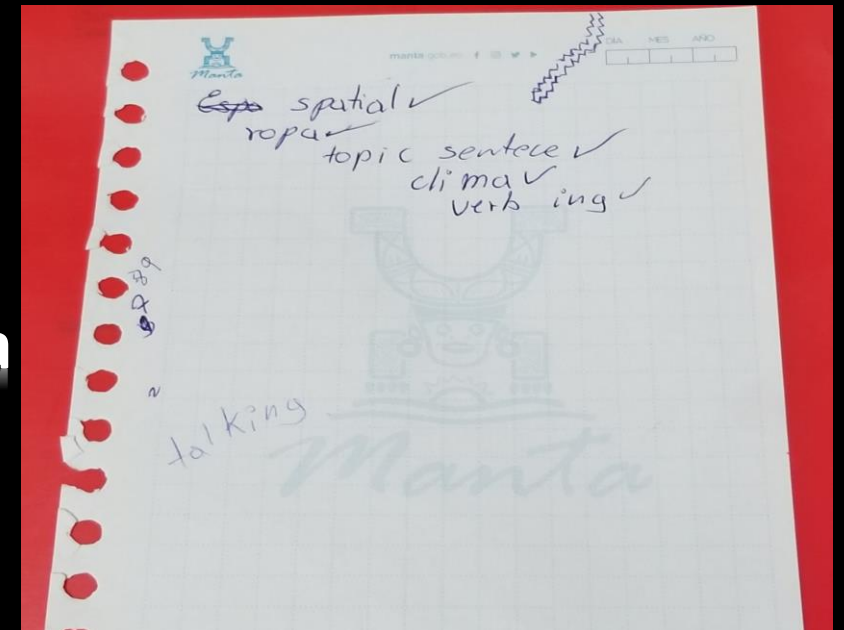 Manta
manta.gob.ec
DIA MES AÑO
spatial ✓
ropa ✓
topic sentece ✓
clima ✓
verb ing ✓
789
talking
Manta